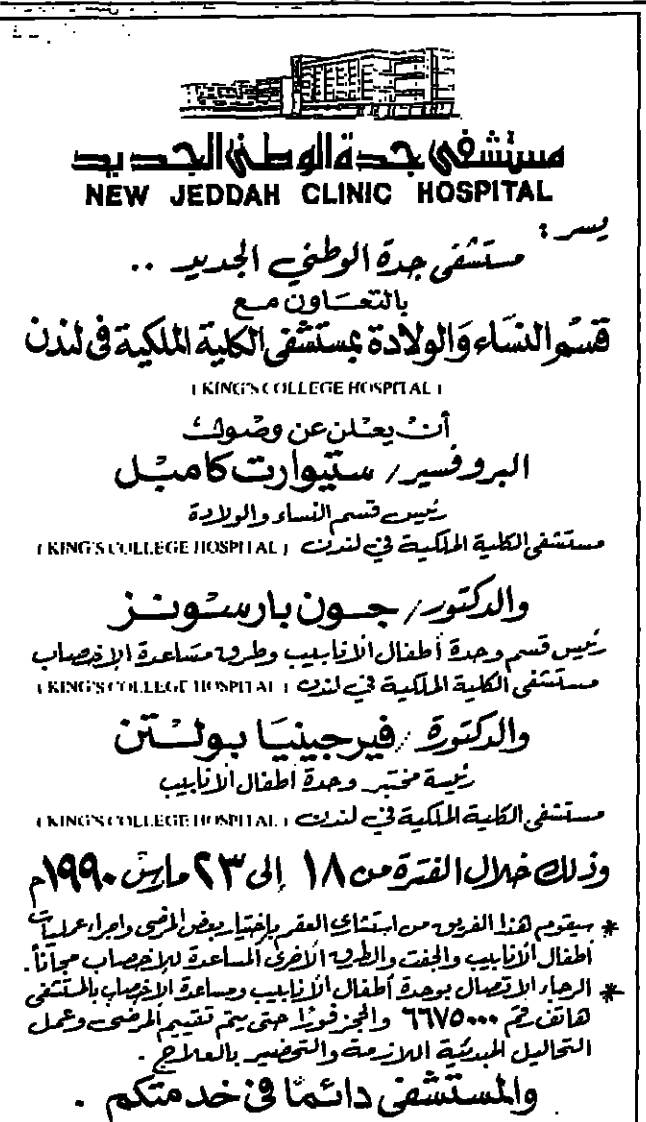 مستشفى جدة الوطني الجديد
NEW JEDDAH CLINIC HOSPITAL
يسر :
مستشفى جدة الوطني الجديد ..
بالتعاون مع
قسم النساء والولادة بمستشفى الكلية الملكية في لندن
( KING'S COLLEGE HOSPITAL )
أن يعلن عن وصول
البروفسير / ستيوارت كامبل
رئيس قسم النساء والولادة
مستشفى الكلية الملكية في لندن ( KING'S COLLEGE HOSPITAL )
والدكتور / جون بارسونز
رئيس قسم وحدة أطفال الأنابيب وطرق مساعدة الإخصاب
مستشفى الكلية الملكية في لندن ( KING'S COLLEGE HOSPITAL )
والدكتورة / فيرجينيا بولتن
رئيسة مختبر وحدة أطفال الأنابيب
مستشفى الكلية الملكية في لندن ( KING'S COLLEGE HOSPITAL )
وذلك خلال الفترة من ١٨ إلى ٢٣ مارس ١٩٩٠م
* سيقوم هذا الفريق من استشاري العقم بإختيار بعض المرضى واجراء عمليات
أطفال الأنابيب والجفت والطرق الأخرى المساعدة للإخصاب مجاناً .
* الرجاء الاتصال بوحدة أطفال الأنابيب ومساعدة الإخصاب بالمستشفى
هاتف رقم ٦٦٧٥٠٠٠ والحجز فورًا حتى يتم تقييم المرضى وعمل
التحاليل المبدئية اللازمة والتحضير بالعلاج .
والمستشفى دائمًا في خدمتكم .